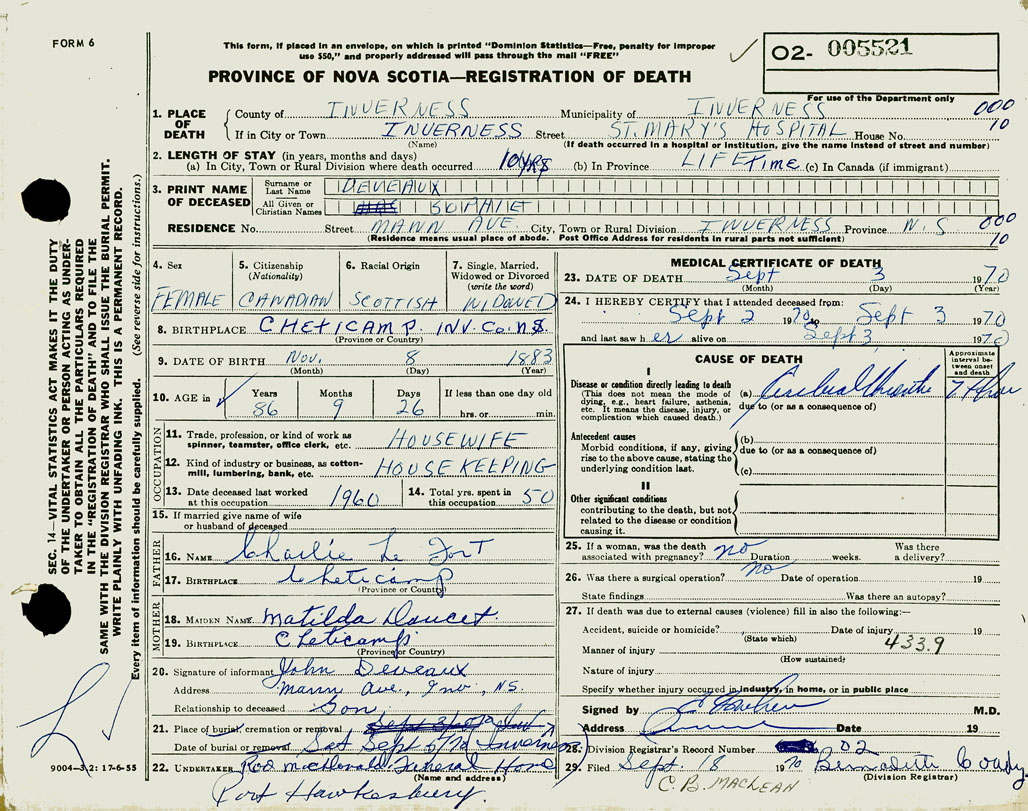 FORM 6
This form, if placed in an envelope, on which is printed "Dominion Statistics—Free, penalty for improper
use $50," and properly addressed will pass through the mail "FREE"
O2- 005521
PROVINCE OF NOVA SCOTIA—REGISTRATION OF DEATH
For use of the Department only
1. PLACE OF DEATH
County of INVERNESS Municipality of INVERNESS 000
If in City or Town INVERNESS Street ST. MARY'S HOSPITAL House No. 10
(Name) (If death occurred in a hospital or institution, give the name instead of street and number)
2. LENGTH OF STAY (in years, months and days)
(a) In City, Town or Rural Division where death occurred 10 yrs (b) In Province LIFETIME (c) In Canada (if immigrant)
3. PRINT NAME OF DECEASED
Surname or Last Name DEVEAUX
All Given or Christian Names SOPHIE
RESIDENCE No. Street MANN AVE City, Town or Rural Division INVERNESS Province N.S 000
(Residence means usual place of abode. Post Office Address for residents in rural parts not sufficient) 10
4. Sex FEMALE
5. Citizenship (Nationality) CANADIAN
6. Racial Origin SCOTTISH
7. Single, Married, Widowed or Divorced (write the word) WIDOWED
8. BIRTHPLACE CHETICAMP. INV. Co. N.S.
(Province or Country)
9. DATE OF BIRTH Nov. 8 1883
(Month) (Day) (Year)
10. AGE in Years 86 Months 9 Days 26 If less than one day old hrs. or min.
OCCUPATION
11. Trade, profession, or kind of work as spinner, teamster, office clerk, etc. HOUSEWIFE
12. Kind of industry or business, as cotton-mill, lumbering, bank, etc. HOUSE KEEPING
13. Date deceased last worked at this occupation 1960
14. Total yrs. spent in this occupation 50
15. If married give name of wife or husband of deceased
FATHER
16. NAME Charlie Le Fort
17. BIRTHPLACE Cheticamp
(Province or Country)
MOTHER
18. MAIDEN NAME Matilda Doucet.
19. BIRTHPLACE Cheticamp
(Province or Country)
20. Signature of informant John Deveaux
Address Mann Ave., Inv., N.S.
Relationship to deceased Son
21. Place of burial, cremation or removal
Date of burial or removal Sat Sept 5/70 Inverness
22. UNDERTAKER Rod MacDonald Funeral Home
(Name and address)
Port Hawkesbury.
MEDICAL CERTIFICATE OF DEATH
23. DATE OF DEATH Sept 3 1970
(Month) (Day) (Year)
24. I HEREBY CERTIFY that I attended deceased from:
Sept 2 1970 to Sept 3 1970
and last saw her alive on Sept 3 1970
CAUSE OF DEATH
Approximate interval between onset and death
I
Disease or condition directly leading to death
(This does not mean the mode of dying, e.g., heart failure, asthenia, etc. It means the disease, injury, or complication which caused death.)
(a)
due to (or as a consequence of)
Antecedent causes
Morbid conditions, if any, giving rise to the above cause, stating the underlying condition last.
(b)
due to (or as a consequence of)
(c)
II
Other significant conditions
contributing to the death, but not related to the disease or condition causing it.
25. If a woman, was the death associated with pregnancy? no Duration weeks. Was there a delivery?
26. Was there a surgical operation? no Date of operation 19
State findings Was there an autopsy?
27. If death was due to external causes (violence) fill in also the following:—
Accident, suicide or homicide? Date of injury 19
(State which) 433.9
Manner of injury
(How sustained)
Nature of injury
Specify whether injury occurred in industry, in home, or in public place
Signed by M.D.
Address Date 19
28. Division Registrar's Record Number 02
29. Filed Sept. 18 1970 Bernadette Coady
(Division Registrar)
C. B. MACLEAN
SEC. 14—VITAL STATISTICS ACT MAKES IT THE DUTY
OF THE UNDERTAKER OR PERSON ACTING AS UNDER-
TAKER TO OBTAIN ALL THE PARTICULARS REQUIRED
IN THE "REGISTRATION OF DEATH" AND TO FILE THE
SAME WITH THE DIVISION REGISTRAR WHO SHALL ISSUE THE BURIAL PERMIT.
WRITE PLAINLY WITH UNFADING INK. THIS IS A PERMANENT RECORD.
Every item of information should be carefully supplied. (See reverse side for instructions.)
9004-S.2: 17-6-55